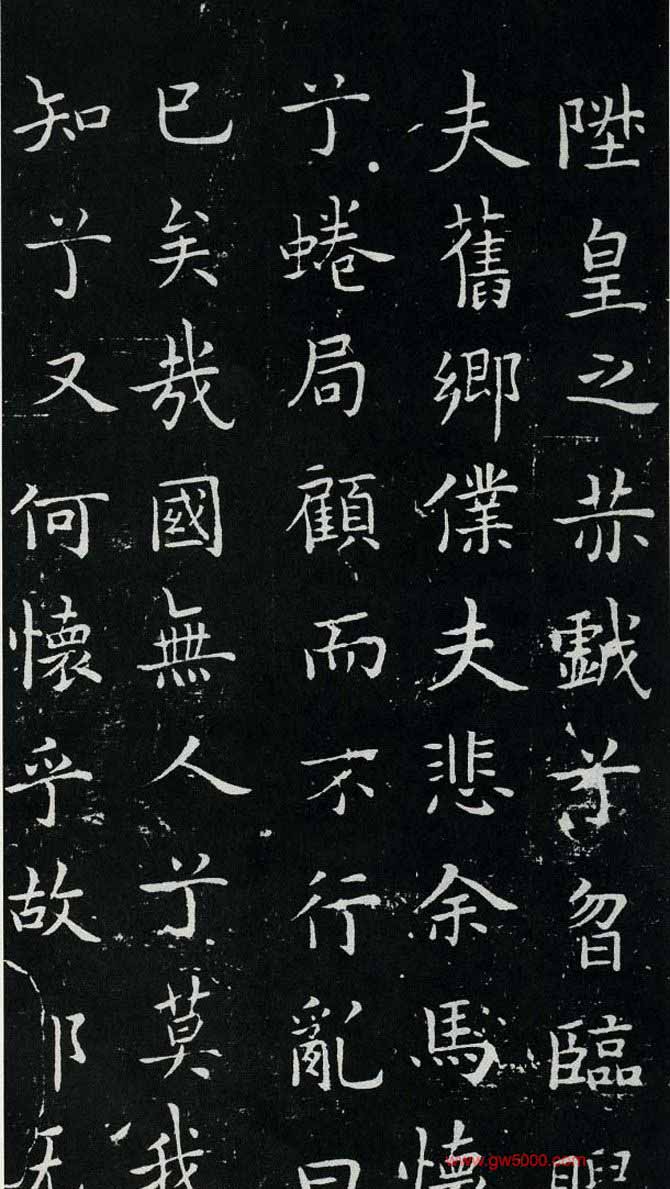 陞皇之赫戲兮曶臨睨
夫舊鄉僕夫悲余馬懷
兮蜷局顧而不行亂曰
已矣哉國無人兮莫我
知兮又何懷乎故
www.gw5000.com